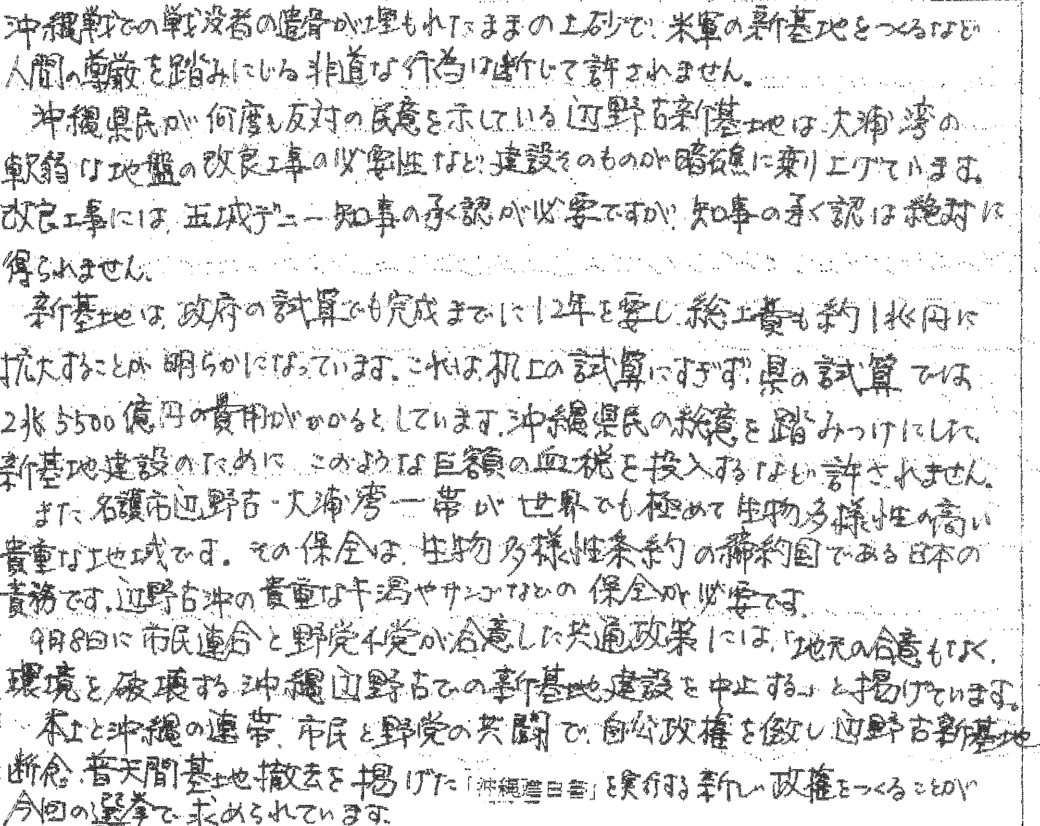 沖縄戦での戦没者の遺骨が埋もれたままの土砂で、米軍の新基地をつくるなど
人間の尊厳を踏みにじる非道な行為は断じて許されません。
沖縄県民が何度も反対の民意を示している辺野古新基地は、大浦湾の
軟弱な地盤の改良工事の必要性など、建設そのものが暗礁に乗り上げています。
改良工事には、玉城デニー知事の承認が必要ですが、知事の承認は絶対に
得られません。
新基地は、政府の試算でも完成までに12年を要し、総工費も約1兆円に
拡大することが明らかになっています。これは、机上の試算にすぎず、県の試算では
2兆5500億円の費用がかかるとしています。沖縄県民の総意を踏みつけにした、
新基地建設のために、このような巨額の血税を投入するなど許されません。
また、名護市辺野古・大浦湾一帯が世界でも極めて生物多様性の高い
貴重な地域です。その保全は、生物多様性条約の締約国である日本の
責務です。辺野古沖の貴重な干潟やサンゴなどの保全が必要です。
9月8日に市民連合と野党4党が合意した共通政策には、「地元の合意もなく、
環境を破壊する沖縄辺野古での新基地建設を中止する」と掲げています。
本土と沖縄の連帯、市民と野党の共闘で、自公政権を倒し、辺野古新基地
断念、普天間基地撤去を掲げた「沖縄建白書」を実行する新しい政権をつくることが
今回の選挙で求められています。